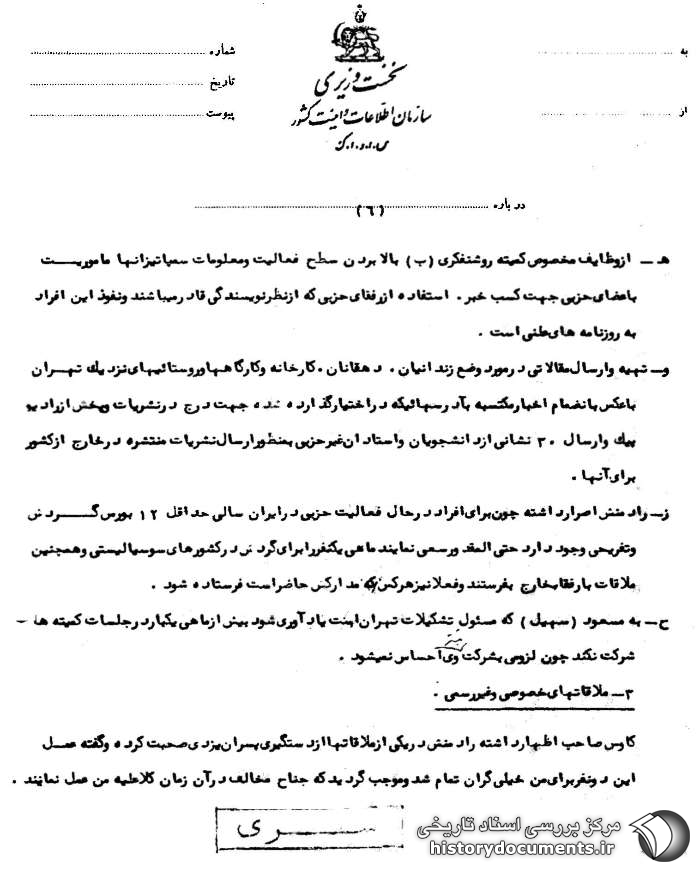 به
شماره
نخست وزیری
تاریخ
سازمان اطلاعات و امنیت کشور
از
پیوست
س.ا.و.ا.ک
درباره
(۶)
هـ ـ ازوظایف مخصوص کمیته روشنفکری (ب) بالا بردن سطح فعالیت ومعلومات سمپاتیزانها ماموریت
باعضای حزبی جهت کسب خبر. استفاده ازرفقای حزبی که ازنظرنویسندگی قادرمیباشند ونفوذ این افراد
به روزنامه های علنی است .
وـ تهیه وارسال مقالاتی درمورد وضع زندانیان . دهقانان . کارخانه وکارگاهها وروستائیهای نزدیك تهران
باعکس بانضمام اخبارمکتسبه بآدرسهائیکه دراختیارگذارده شده جهت درج درنشریات وپخش ازرادیو
پیك وارسال ۳۰ نشانی ازدانشجویان واستادان غیرحزبی بمنظورارسال نشریات منتشره درخارج ازکشور
برای آنها .
زـ رادمنش اصرارداشته چون برای افراد درحال فعالیت حزبی درایران سالی حداقل ۱۲ بورس گردش
وتفریحی وجود دارد حتی المقدورسعی نمایند ماهی یکنفررابرای گردش درکشورهای سوسیالیستی وهمچنین
ملاقات بارفقابخارج بفرستند وفعلا نیزهرکس که مدارکش حاضراست فرستاده شود .
ح ـ به مسعود (سهیل) که مسئول تشکیلات تهران است یادآوری شود بیش ازماهی یکباردرجلسات کمیته ها
شرکت نکند چون لزومی بشرکت وی احساس نمیشود .
۳ـ ملاقاتهای خصوصی وغیررسمی .
کاوس صاحب اظهارداشته رادمنش دریکی ازملاقاتها ازدستگیری پسران یزدی صحبت کرده وگفته عمل
این دونفربرای من خیلی گران تمام شد وموجب گردید که جناح مخالف درآن زمان کلاعلیه من عمل نمایند .
سری
مرکز بررسی اسناد تاریخی
historydocuments.ir